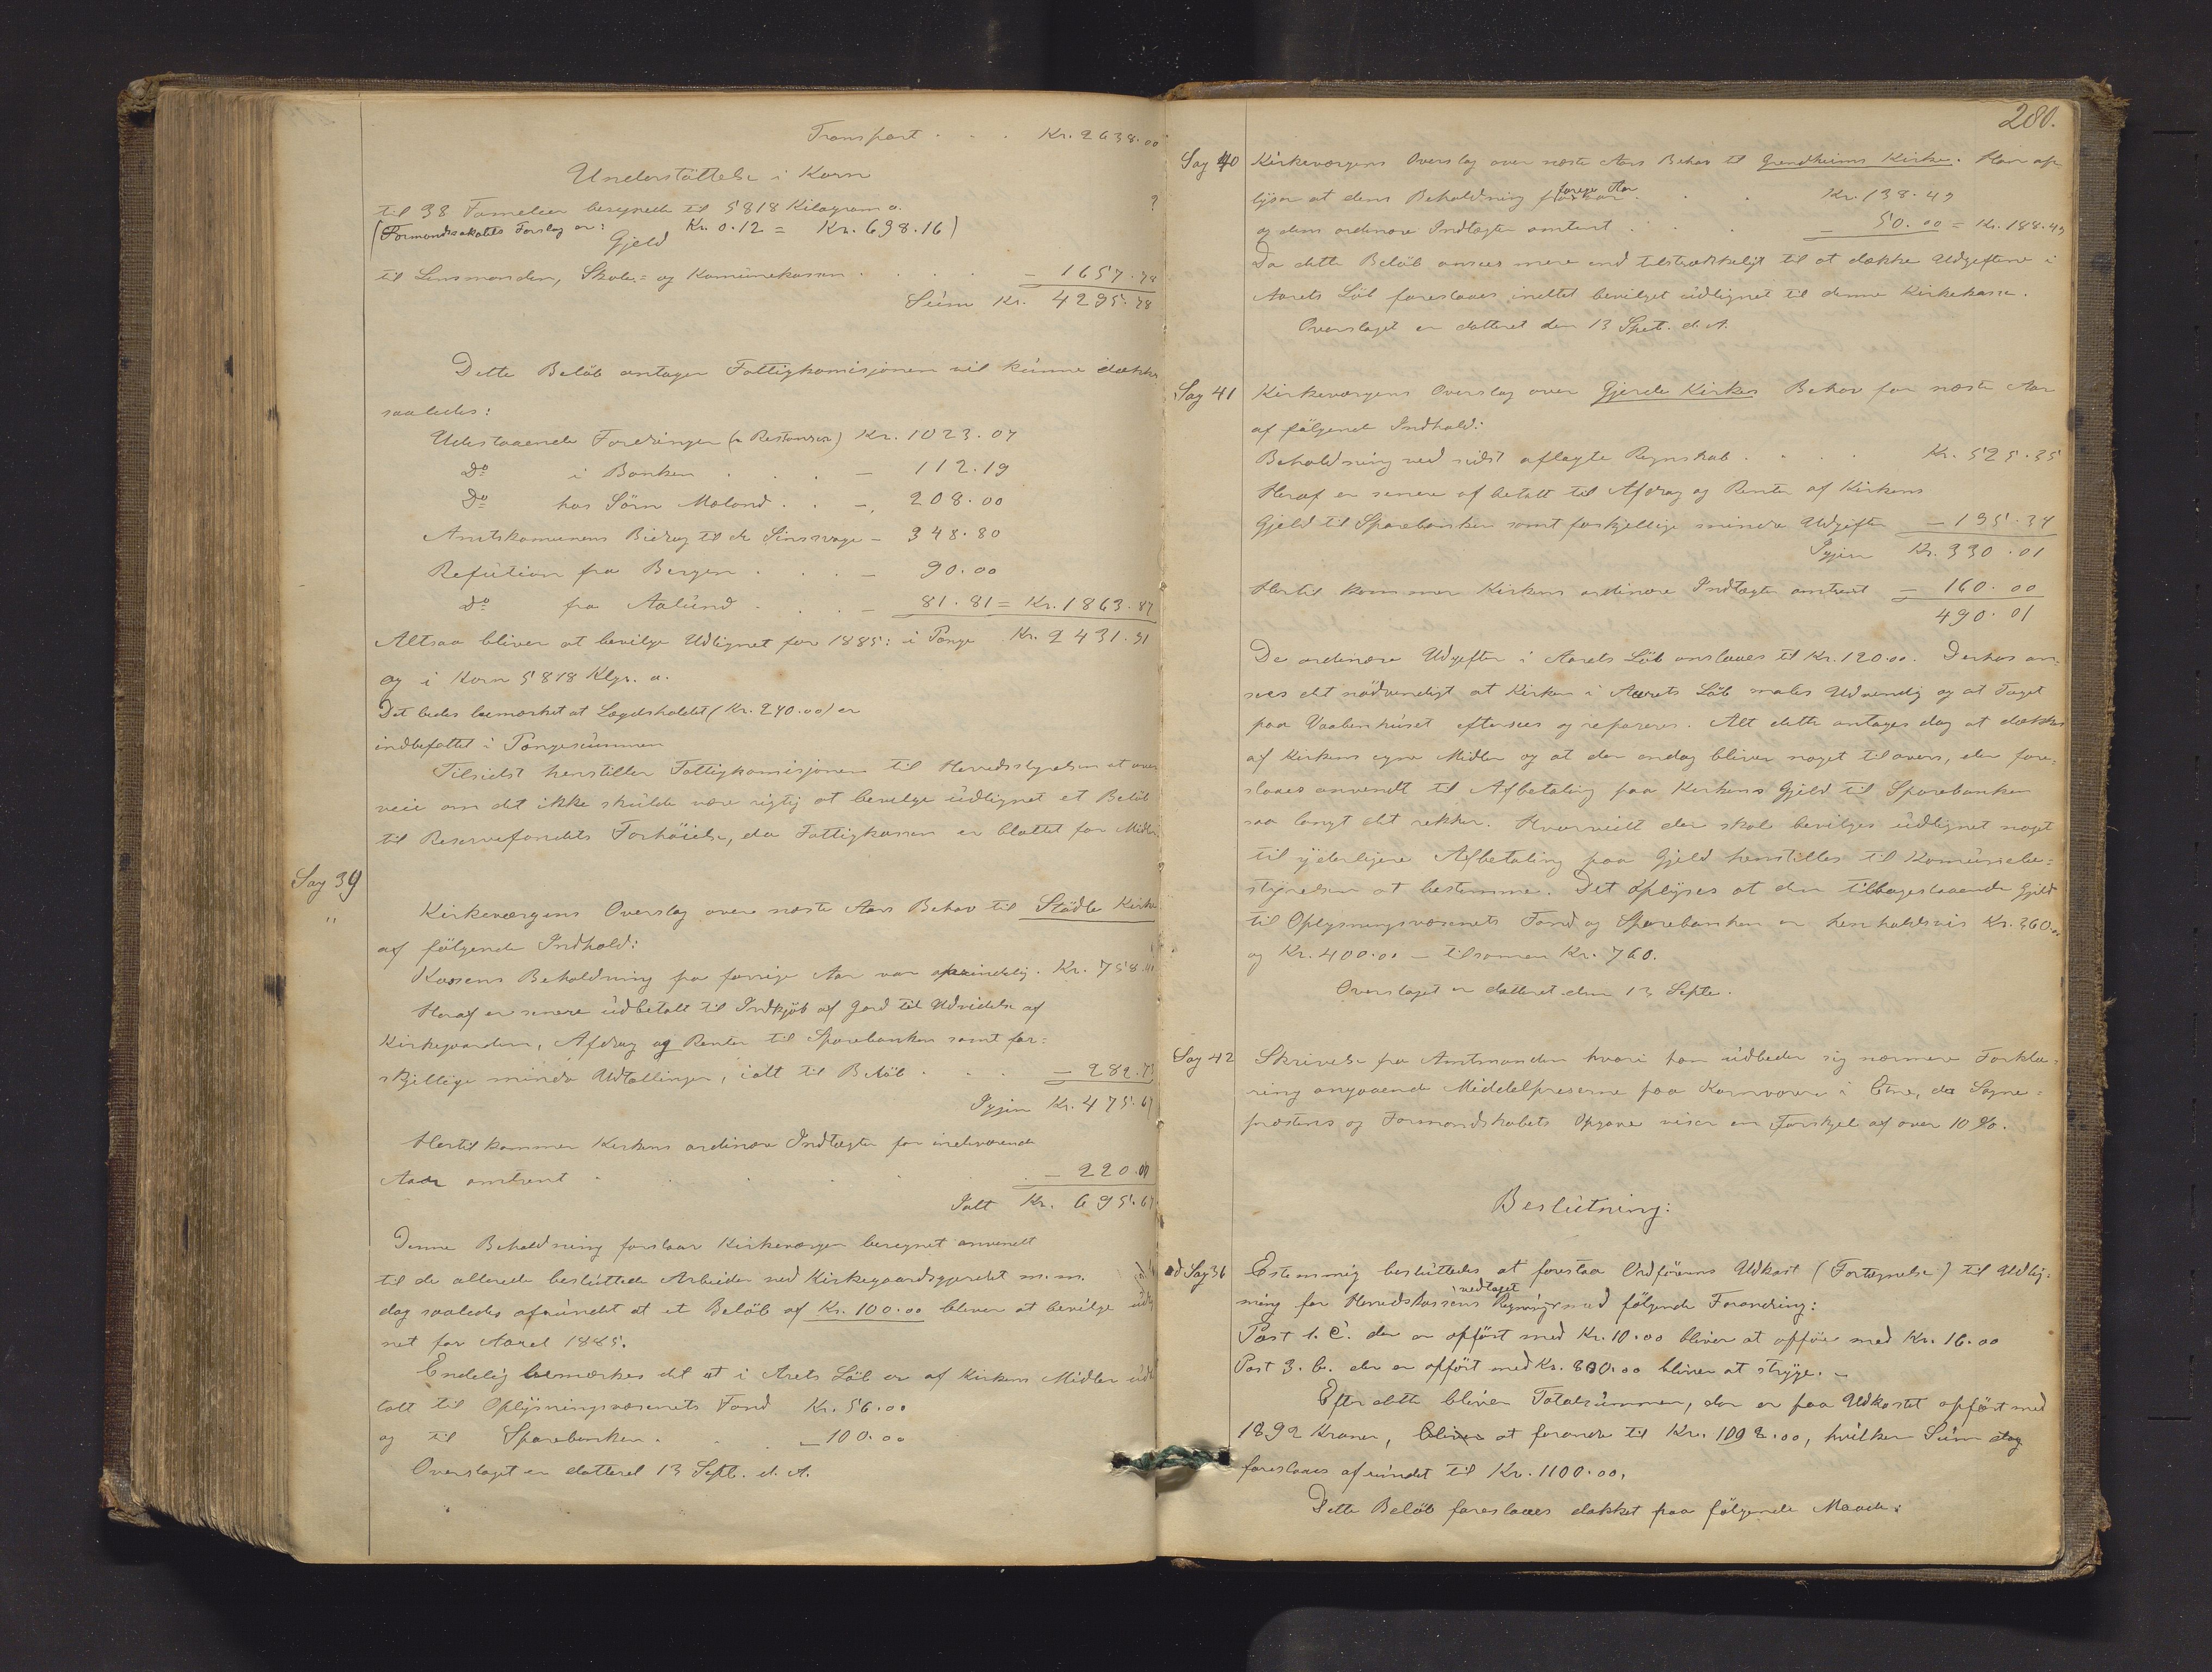 Transport . . . Kr. 2638.00
Understöttelse i Korn
til 38 Familier beregnede til 5818 Kilogram a. ?
(Formandsskabets Forslag er: Kr. 0.12 = Kr. 698.16)
Gjeld
til Lensmanden, Skole= og Komünekassen . . . . — 1657.78
Süm Kr. 4295.78
Dette Belöb antager Fattigkomisjonen vil künne dækkes
saaledes:
Udestaaende Fordringer (a Restanser) Kr. 1023.07
Do i Banken . . . — 112.19
Do hos Sörn Mæland . . — 208.00
Amtskomunens Bidrag til de Sinssvage — 348.80
Refütion fra Bergen . . . — 90.00
Do fra Aalünd . . . — 81.81 = Kr. 1863.87
Altsaa bliver at bevilge Udlignet for 1885: i Penge Kr. 2431.91
og i Korn 5818 Klgr. a.
Det bedes bemærket at Lægdsholdet (Kr. 240.00) er
indbefattet i Pengesümmen
Tilsidst henstiller Fattigkomisjonen til Herredsstyrelsen at over
veie om det ikke skülde være rigtig at bevilge üdlignet et Belöb
til Reservefondets Forhöielse, da Fattigkassen er blottet for Midler
Sag 39
"
Kirkeværgens Overslag over næste Aars Behov til Stödle Kirke
af fölgende Indhold:
Kassens Beholdning fra forrige Aar var oprindelig. Kr. 758.40
Heraf er senere üdbetalt til Indkjöb af Jord til Udvidelse af
Kirkegaarden, Afdrag og Renter til Sparebanken samt for=
skjellige mindre Udtællinger, ialt til Belöb . . . — 282.73
Igjen Kr. 475.67
Hertil kommer Kirkens ordinære Indtægter for indeværende
Aar omtrent . . . . . — 220.00
Ialt Kr. 695.67
Denne Beholdning foreslaar Kirkeværgen beregnet anvendt
til de allerede beslüttede Arbeider ved Kirkegaardsgjerdet m.m.
dog saaledes afründet at et Belöb af Kr. 100.00 bliver at bevilge üdlig
net for Aaret 1885.
Endelig bemærkes det at i Arets Löb er af Kirkens Midler üdb
talt til Oplysningsvæsenets Fond Kr. 56.00
og til Sparebanken . . . — 100.00
Overslaget er datteret 13 Septb. d. A.
280.
Sag 40 Kirkeværgens Overslag over næste Aars Behov til Grendheims Kirke. Han op
lyser at dens Beholdning forrige Aar . . . Kr. 138.49
og dens ordinære Indtægter omtrent . . . — 50.00 = Kr. 188.49
Da dette Belöb ansees mere end tilstrækkeligt til at dække Udgifterne i
Aarets Löb foreslaaes intet bevilget üdlignet til denne Kirkekasse.
Overslaget er datteret den 13 Sept. d. A.
Sag 41 Kirkeværgens Overslag over Gjerde Kirkes Behov for næste Aar
af fölgende Indhold:
Beholdning ved sidst aflagte Regnskab . . . . Kr. 525.35
Heraf er senere afbetalt til Afdrag og Renter af Kirkens
Gjeld til Sparebanken samt forskjellige mindre Udgifter — 195.34
Igjen Kr. 330.01
Hertil kommer Kirkens ordinære Indtægter omtrent — 160.00
490.01
De ordinære Udgifter i Aarets Löb anslaaes til Kr. 120.00. Derhos an-
sees det nödvendigt at Kirken i Aarets Löb males Udvendig og at Taget
paa Vaabenhüset eftersees og repareres. Alt dette antages dog at dækkes
af Kirkens egne Midler og at der endog bliver noget tilovers, der fore=
slaaes anvendt til Afbetaling paa Kirkens Gjeld til Sparebanken
saa langt det rekker. Hvorvidt der skal bevilges üdlignet noget
til yderligere Afbetaling paa Gjeld henstilles til Komünebe=
styrelsen at bestemme. Det oplyses at den tilbagestaaende Gjeld
til Oplysningsvæsenets Fond og Sparebanken er henholdsvis Kr. 360.00
og Kr. 400.00 — tilsamen Kr. 760.
Overslaget er datteret den 13 Septe.
Sag 42 Skrivelse fra Amtmanden hvori han üdbeder sig nærmere Forkla-
ring angaaende Middelpriserne paa Kornvarer i Etne, da Sogne=
præstens og Formandskabets Opgave viser en Forskjel af over 10 %.
Beslütning:
ad Sag 36 Estemmig beslüttedes at foreslaa Ordförerens Udkast (Fortegnelse) til Udlig-
ning for Herredskassens Regning vedtaget med fölgende Forandring:
Post 1. c. der er opfört med Kr. 10.00 bliver at opföre med Kr. 16.00
Post 3. b. der er opfört med Kr. 800.00 bliver at stryge. —
Efter dette bliver Totalsümmen, der er paa Udkastet opfört med
1892 Kroner, at forandre til Kr. 1098.00, hvilken Süm dog
foreslaaes afründet til Kr. 1100.00.
Dette Belöb foreslaaes dækket paa fölgende Maade: